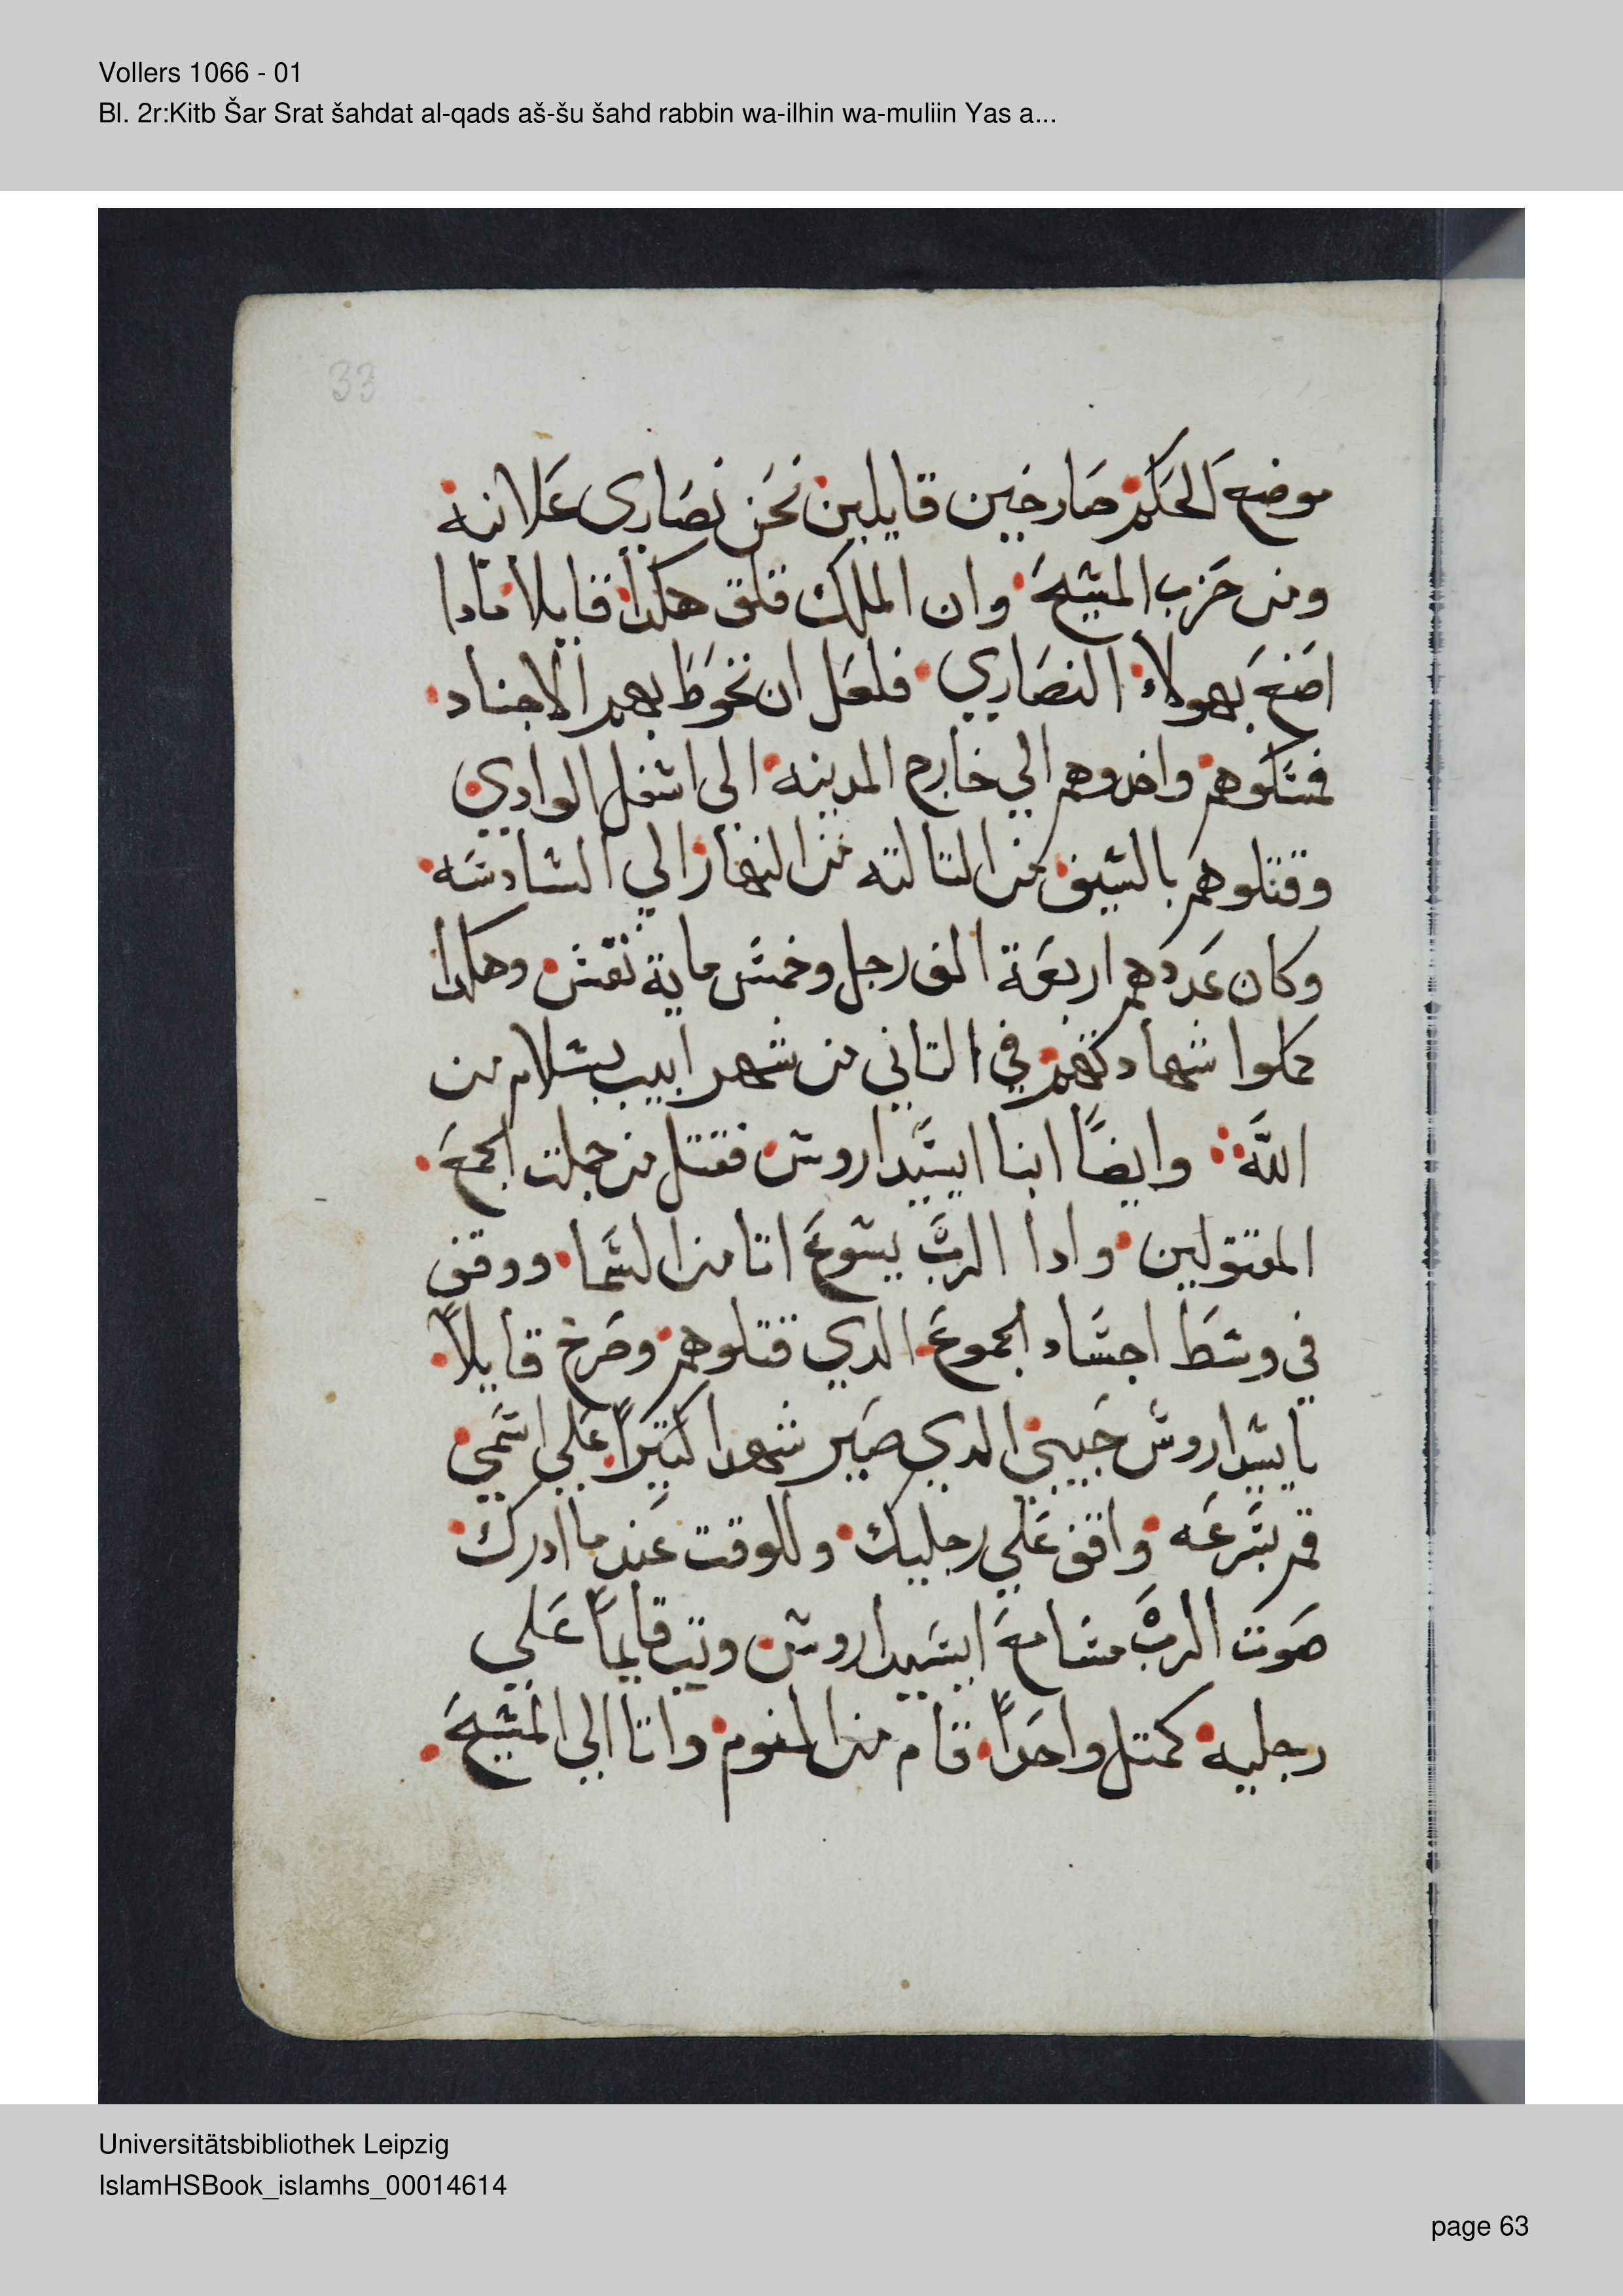 Vollers 1066 - 01
Bl. 2r:Kitb Šar Srat šahdat al-qads aš-šu šahd rabbin wa-ilhin wa-muliin Yas a...
33
موضع الحكم صارخين قايلين نحن نصاري علانيه
ومن حزب المسيح وان الملك قلق هكدا قايلا مادا
اصنع بهولاء النصاري فلعل ان نحوط بهم الاجناد
فمسكوهم واخدوهم الي خارج المدينه الي اسفل الوادي
وقتلوهم بالسيف من التالته من النهار الي السادسه
وكان عددهم اربعة الف رجل وخمس ماية نفس وهكدا
كملوا شهادتهم في التاني من شهر ابيب بسلام من
الله وايضًا ابنا ايسيداروس فقتل من جملت الجمع
المقتولين وادا الرب يسوع اتا من السما ووقف
في وسط اجساد الجموع الدي قتلوهم وصرخ قايلاً
يا يسيداروس حبيبي الدي صير شهدا كتيراً علي اسمي
قم بسرعه واقف علي رجليك وللوقت عند ما ادرك
صوت الرب مسامع ايسيداروس وتب قايماً علي
رجليه كمتل واحداً قام من النوم واتا الي المسيح
Universitätsbibliothek Leipzig
IslamHSBook_islamhs_00014614
page 63